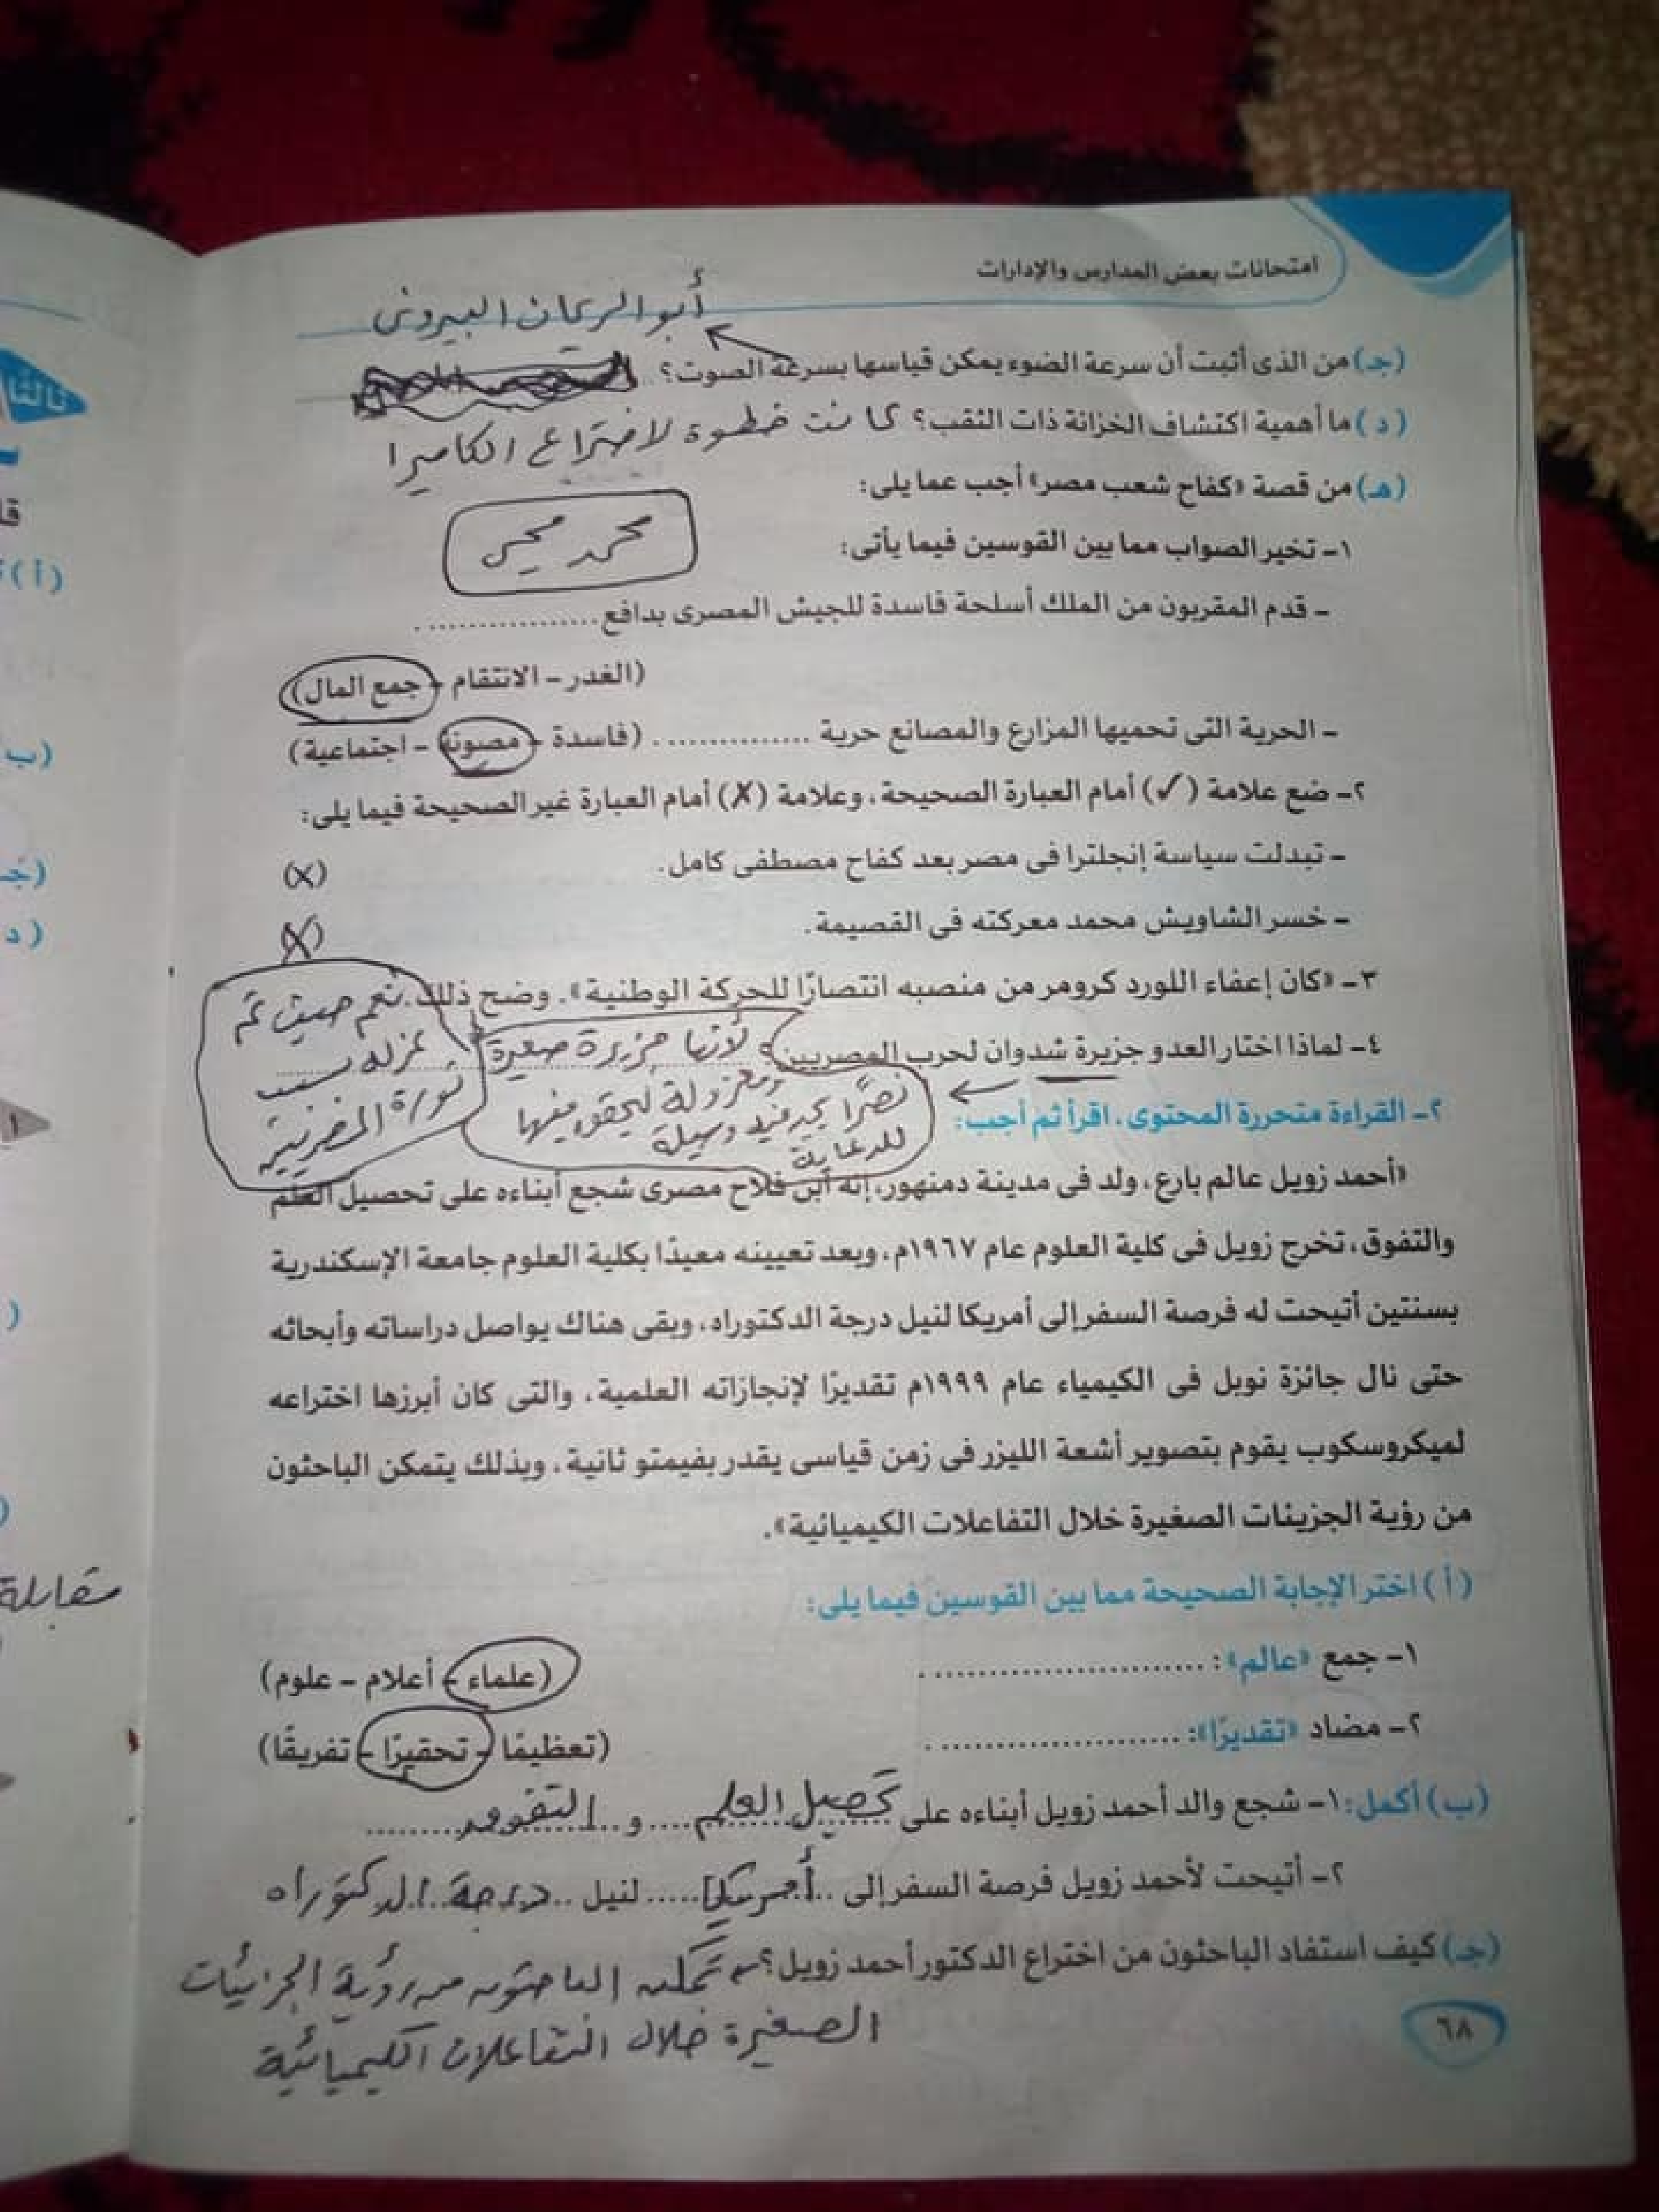 امتحانات بعض المدارس والإدارات
أبو الريحان البيرونى
(جـ) من الذى أثبت أن سرعة الضوء يمكن قياسها بسرعة الصوت؟
(د) ما أهمية اكتشاف الخزانة ذات الثقب؟ كانت خطوة لاختراع الكاميرا
(هـ) من قصة «كفاح شعب مصر» أجب عما يلى:
١- تخير الصواب مما بين القوسين فيما يأتى:
محمد
- قدم المقربون من الملك أسلحة فاسدة للجيش المصرى بدافع .................
(الغدر - الانتقام - جمع المال)
- الحرية التى تحميها المزارع والمصانع حرية ............... . (فاسدة - مصونة - اجتماعية)
٢- ضع علامة (✓) أمام العبارة الصحيحة، وعلامة (X) أمام العبارة غير الصحيحة فيما يلى:
- تبدلت سياسة إنجلترا فى مصر بعد كفاح مصطفى كامل. (X)
- خسر الشاويش محمد معركته فى القصيمة. (X)
٣- «كان إعفاء اللورد كرومر من منصبه انتصارًا للحركة الوطنية». وضح ذلك. نعم حيث تم
عزله بسبب
ثورة المصريين
٤- لماذا اختار العدو جزيرة شدوان لحرب المصريين؟ لأنها جزيرة صغيرة
ومعزولة ليحقق فيها
نصرًا يجد فيه وسيلة
للدعاية
٢- القراءة متحررة المحتوى، اقرأ ثم أجب:
«أحمد زويل عالم بارع، ولد فى مدينة دمنهور، إنه ابن فلاح مصرى شجع أبناءه على تحصيل العلم
والتفوق، تخرج زويل فى كلية العلوم عام ١٩٦٧م، وبعد تعيينه معيدًا بكلية العلوم جامعة الإسكندرية
بسنتين أتيحت له فرصة السفر إلى أمريكا لنيل درجة الدكتوراه، وبقى هناك يواصل دراساته وأبحاثه
حتى نال جائزة نوبل فى الكيمياء عام ١٩٩٩م تقديرًا لإنجازاته العلمية، والتى كان أبرزها اختراعه
لميكروسكوب يقوم بتصوير أشعة الليزر فى زمن قياسى يقدر بفيمتو ثانية، وبذلك يتمكن الباحثون
من رؤية الجزيئات الصغيرة خلال التفاعلات الكيميائية».
(أ) اختر الإجابة الصحيحة مما بين القوسين فيما يلى:
١- جمع «عالم»: ......................... . (علماء - أعلام - علوم)
٢- مضاد «تقديرًا»: ....................... . (تعظيمًا - تحقيرًا - تفريقًا)
(ب) أكمل: ١- شجع والد أحمد زويل أبناءه على تحصيل العلم و التفوق
٢- أتيحت لأحمد زويل فرصة السفر إلى أمريكا لنيل درجة الدكتوراه
(جـ) كيف استفاد الباحثون من اختراع الدكتور أحمد زويل؟ تمكن الباحثون من رؤية الجزئيات
الصغيرة خلال التفاعلات الكيميائية
٦٨
ثالثًا
(أ)
(ب)
(جـ)
(د)
١
مقابلة